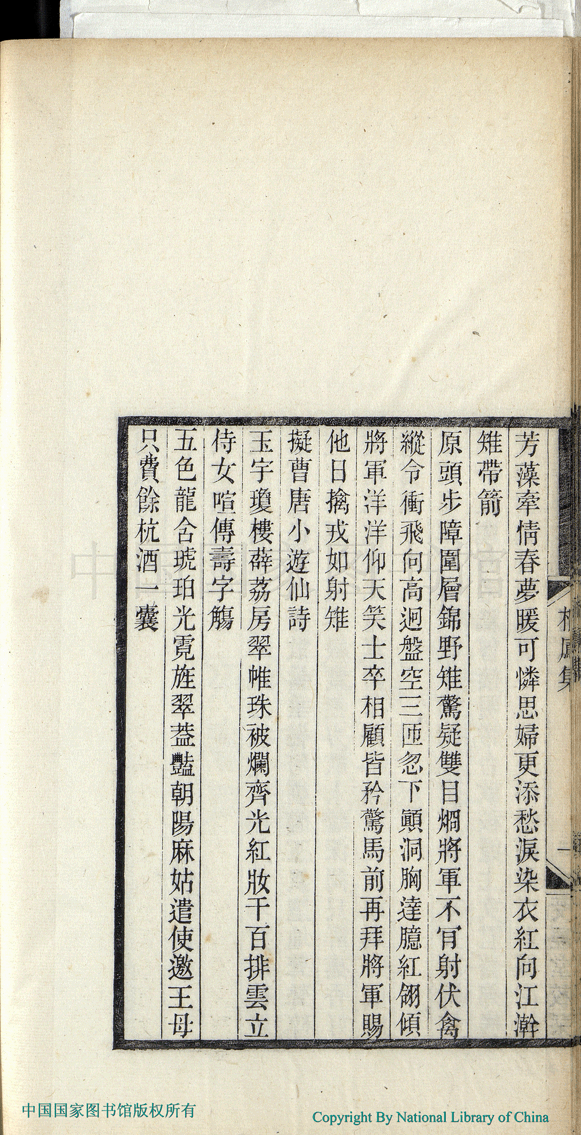 芳藻牽情春夢暖可憐思婦更添愁淚染衣紅向江澣
雉帶箭
原頭步障圍層錦野雉驚疑雙目烱將軍不肎射伏禽
縱令衝飛向高迥盤空三匝忽下顚洞胸達臆紅翎傾
將軍洋洋仰天笑士卒相顧皆矜驚馬前再拜將軍賜
他日擒戎如射雉
擬曹唐小遊仙詩
玉宇瓊樓薜荔房翠帷珠被爛齊光紅妝千百排雲立
侍女喧傳壽字觴
五色龍舍琥珀光霓旌翠葢豔朝陽麻姑遣使邀王母
只費餘杭酒一囊
集
一
中国国家图书馆版权所有
Copyright By National Library of China